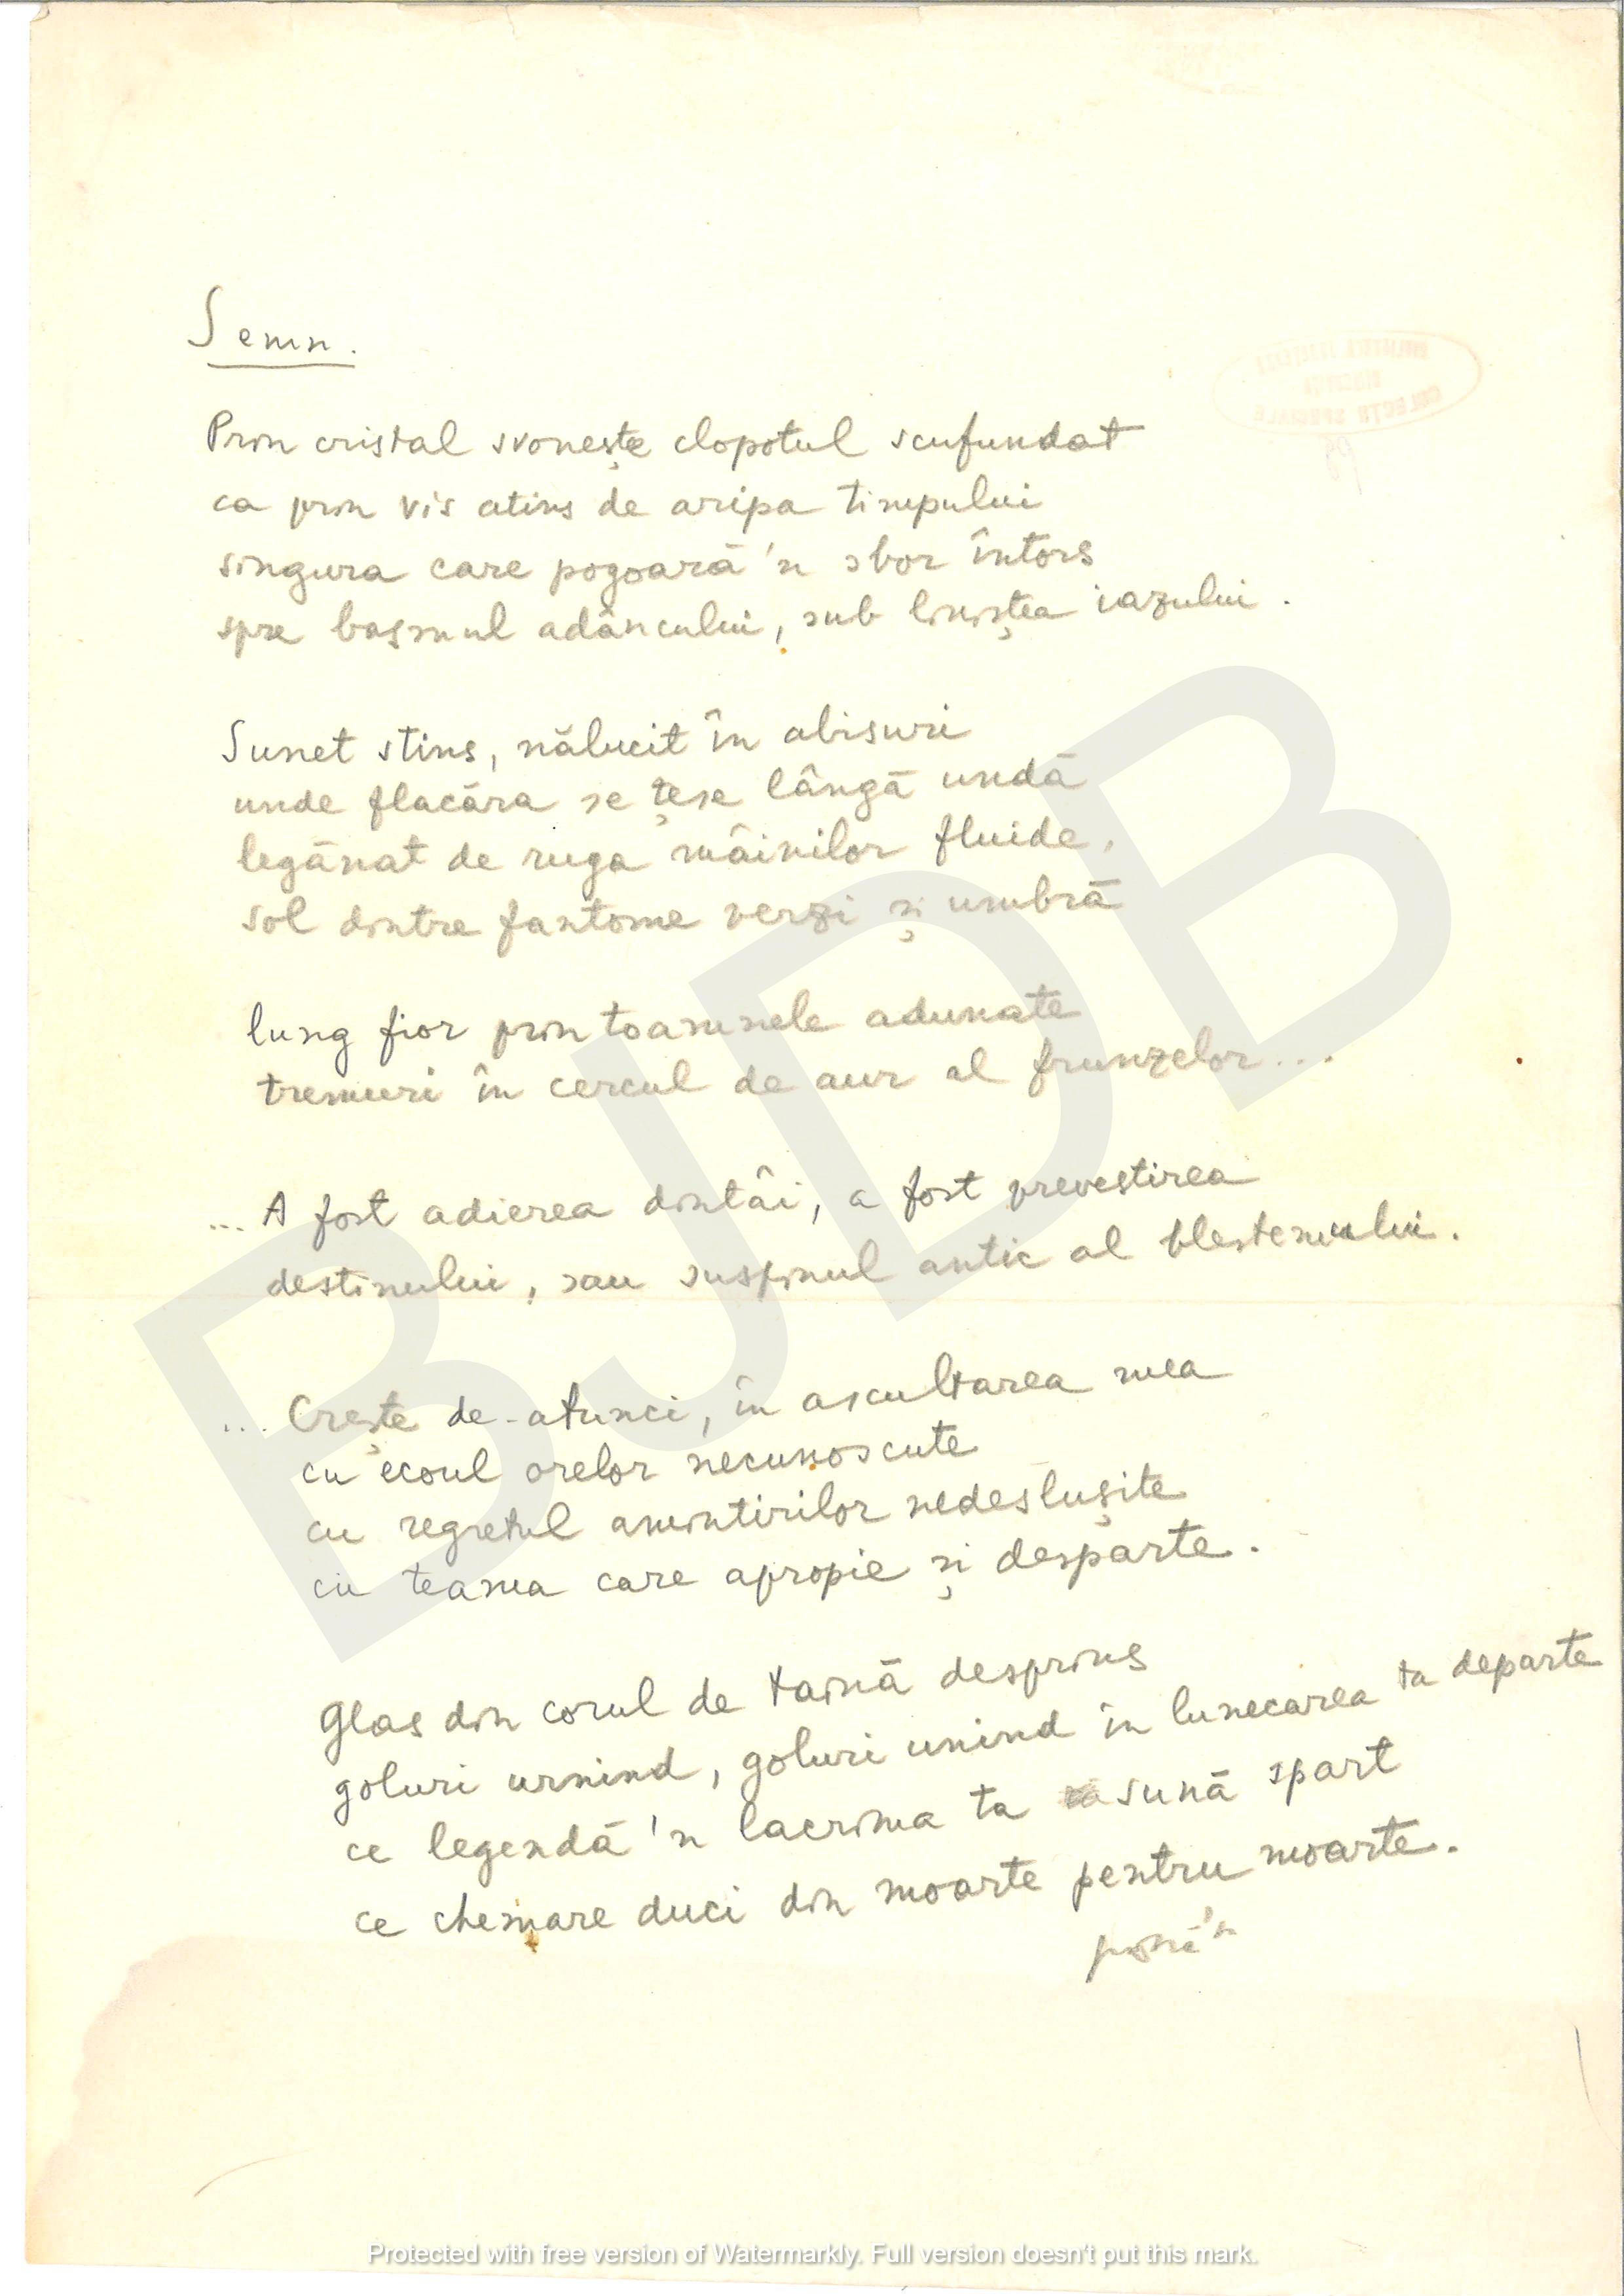 Semn.
Prin cristal svonește clopotul scufundat
ca prin vis atins de aripa timpului
singura care pogoară 'n sbor întors
spre basmul adâncului, sub liniștea iazului.
Sunet stins, nălucit în abisuri
unde flacăra se țese lângă undă
legănat de ruga mâinilor fluide,
sol dintre fantome verzi și umbră
lung fior prin toamnele adunate
tremuri în cercul de aur al frunzelor...
... A fost adierea dintâi, a fost prevestirea
destinului, sau suspinul antic al blestemului.
... Crește de-atunci, în ascultarea mea
cu ecoul orelor necunoscute
cu regretul amintirilor nedeslușite
cu teama care apropie și desparte.
Glas din corul de taină desprins
goluri urnind, goluri unind în lunecarea ta departe
ce legendă 'n lacrima ta sună spart
ce chemare duci din moarte pentru moarte.
până 'n
BJDB
Protected with free version of Watermarkly. Full version doesn't put this mark.